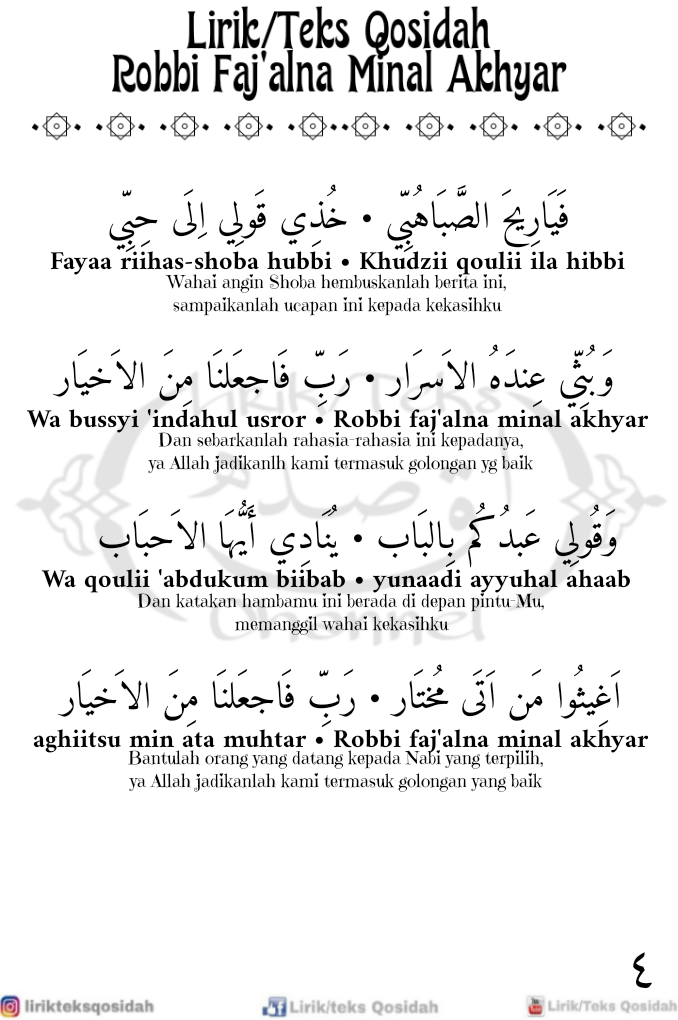 Lirik/Teks Qosidah
Robbi Faj'alna Minal Akhyar
فَيَارِيحَ الصَّبَاهُبِّي • خُذِي قَولِي اِلَى حِبِّي
Fayaa riihas-shoba hubbi • Khudzii qoulii ila hibbi
Wahai angin Shoba hembuskanlah berita ini,
sampaikanlah ucapan ini kepada kekasihku
وَبُثِّي عِندَهُ الاَسرَار • رَبِّ فَاجعَلنَا مِنَ الاَخيَار
Wa bussyi 'indahul usror • Robbi faj'alna minal akhyar
Dan sebarkanlah rahasia-rahasia ini kepadanya,
ya Allah jadikanlh kami termasuk golongan yg baik
وَقُولِي عَبدُكُم بِالبَاب • يُنَادِي أَيُّهَا الاَحبَاب
Wa qoulii 'abdukum biibab • yunaadi ayyuhal ahaab
Dan katakan hambamu ini berada di depan pintu-Mu,
memanggil wahai kekasihku
اَغِيثُوا مَن اَتَى مُختَار • رَبِّ فَاجعَلنَا مِنَ الاَخيَار
aghiitsu min ata muhtar • Robbi faj'alna minal akhyar
Bantulah orang yang datang kepada Nabi yang terpilih,
ya Allah jadikanlah kami termasuk golongan yang baik
Lirik/Teks
قصيدة
Channel
٤
lirikteksqosidah
Lirik/teks Qosidah
Lirik/Teks Qosidah